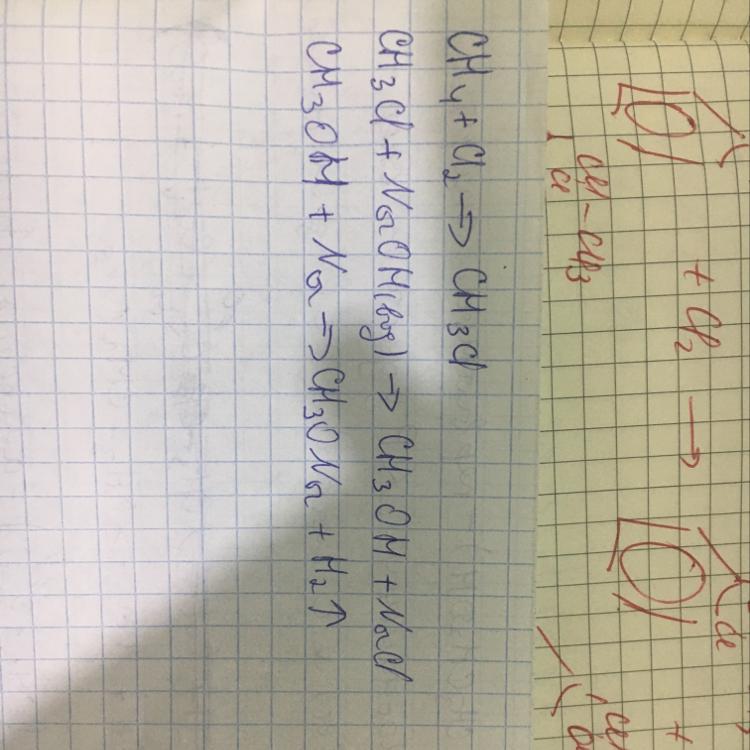 CH4 + Cl2 → CH3Cl
CH3Cl + NaOH(вод) → CH3OH + NaCl
CH3OH + Na → CH3ONa + H2↑
+ Cl2 →
Cl
CH-CH3
Cl
+